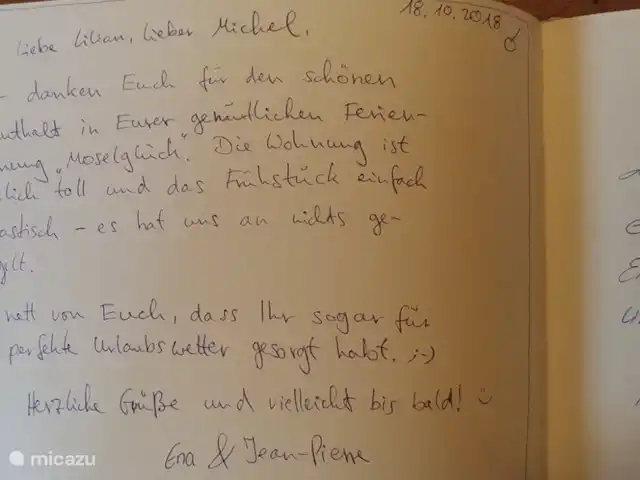 18.10.2018
Liebe Lilian, lieber Michel,
– danken Euch für den schönen
nthalt in Eurer gemütlichen Ferien-
nung „Moselglück". Die Wohnung ist
lich toll und das Frühstück einfach
astisch – es hat uns an nichts ge-
gelt.
nett von Euch, dass Ihr sogar für
perfekte Urlaubswetter gesorgt habt. ;-)
Herzliche Grüße und vielleicht bis bald!
& Jean-Pierre
micazu